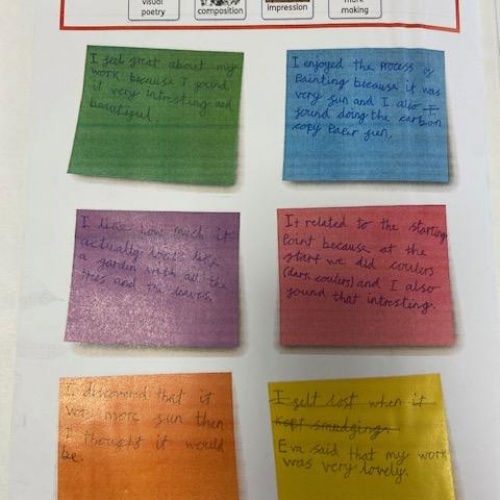 visual
poetry
composition
impression
mark
making
I feel great about my
work because I found
it very intresting and
beautiful.
I enjoyed the process of
Painting because it was
very fun and I also
found doing the carbon
copy Paer fun.
I like how much it
actually looks like
a garden with all the
trees and the leaves
It related to the starting
Point because at the
start we did coulers
(dark coulers) and I also
found that intresting.
I discovered that it
was more fun then
I thought it would
be.
I felt lost when it
kept smudging.
Eva said that my work
was very lovely.